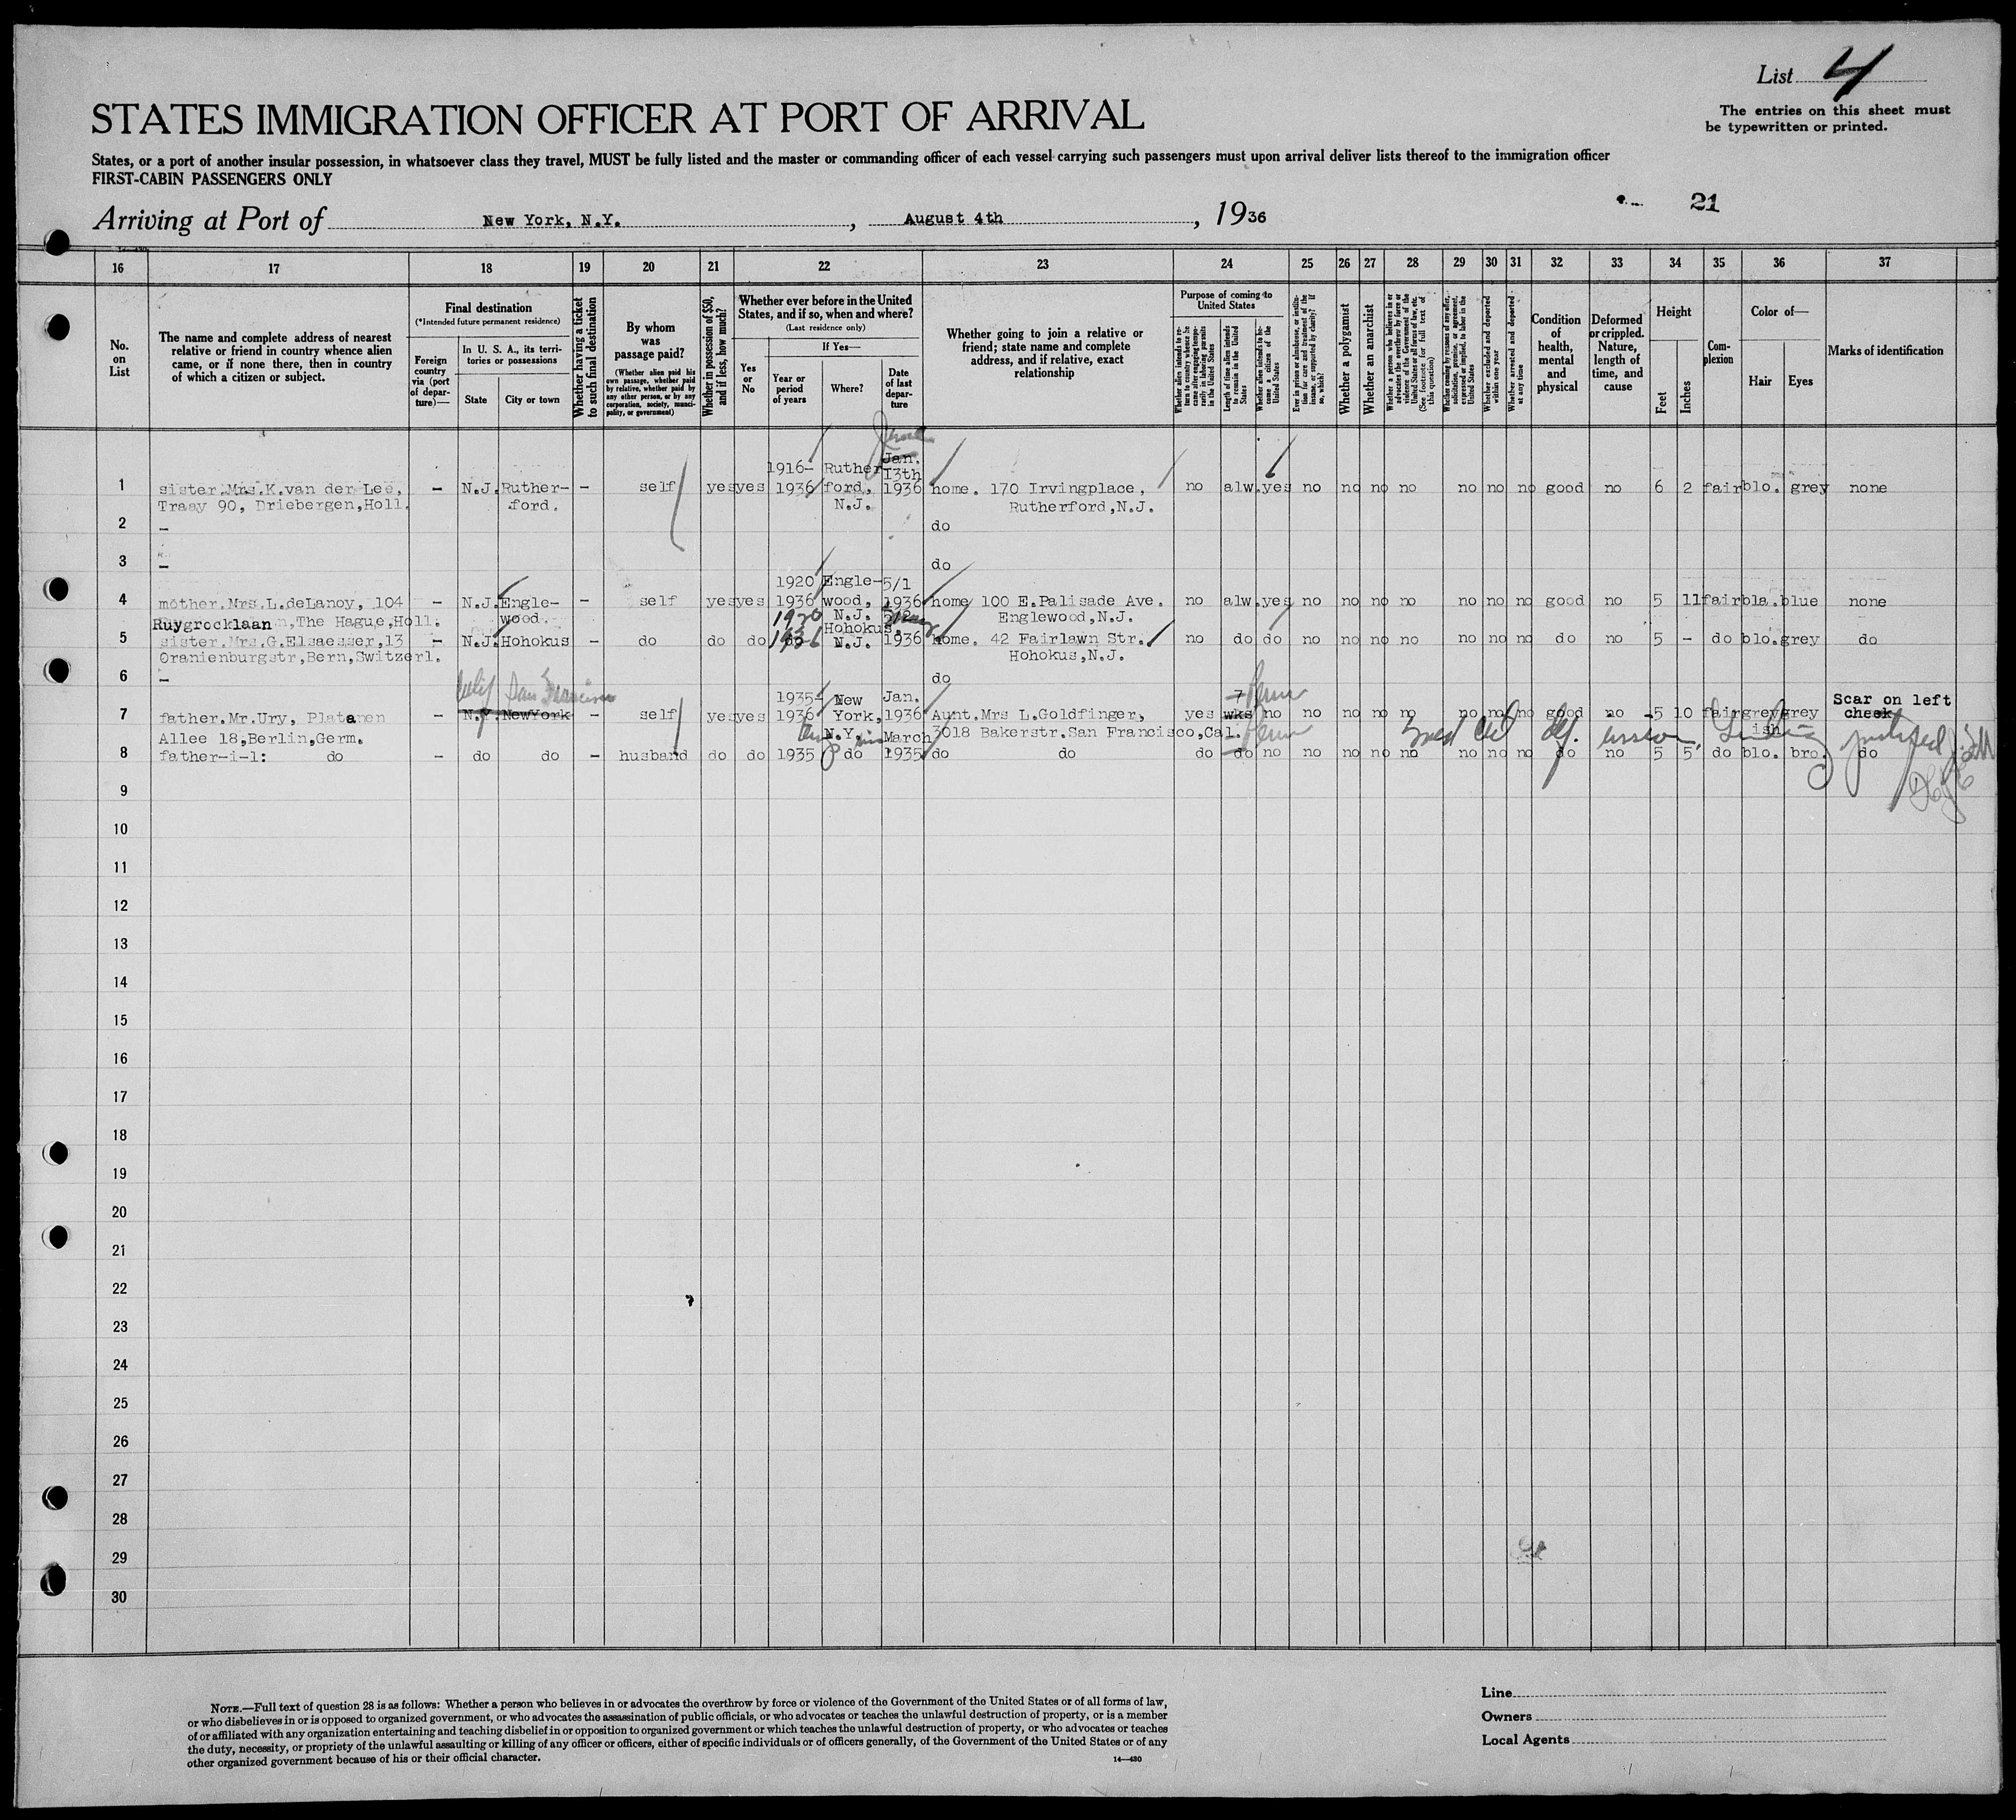 List 4
STATES IMMIGRATION OFFICER AT PORT OF ARRIVAL
The entries on this sheet must
be typewritten or printed.
States, or a port of another insular possession, in whatsoever class they travel, MUST be fully listed and the master or commanding officer of each vessel carrying such passengers must upon arrival deliver lists thereof to the immigration officer
FIRST-CABIN PASSENGERS ONLY
Arriving at Port of New York, N.Y. , August 4th , 1936
21
16 17 18 19 20 21 22 23 24 25 26 27 28 29 30 31 32 33 34 35 36 37
No. on List
The name and complete address of nearest relative or friend in country whence alien came, or if none there, then in country of which a citizen or subject.
Final destination
(*Intended future permanent residence)
Foreign country via (port of departure)—
In U. S. A., its territories or possessions
State
City or town
Whether having a ticket to such final destination
By whom was passage paid?
(Whether alien paid his own passage, whether paid by relative, whether paid by any other person, or by any corporation, society, municipality, or government)
Whether in possession of $50, and if less, how much?
Whether ever before in the United States, and if so, when and where?
(Last residence only)
Yes or No
If Yes—
Year or period of years
Where?
Date of last departure
Whether going to join a relative or friend; state name and complete address, and if relative, exact relationship
Purpose of coming to United States
Length of time alien intends to remain in the United States
Whether alien intends to become a citizen of the United States
Whether a polygamist
Whether an anarchist
(See footnote for full text of this question)
Whether excluded and deported within one year
Whether arrested and deported at any time
Condition of health, mental and physical
Deformed or crippled. Nature, length of time, and cause
Height
Feet
Inches
Complexion
Color of—
Hair
Eyes
Marks of identification
June
1916- Ruther Jan. 13th
1 sister.Mrs.K.van der Lee, - N.J. Ruther- - self yes yes 1936 ford, 1936 home. 170 Irvingplace, no alw. yes no no no no no no no good no 6 2 fair blo. grey none
Traay 90, Driebergen,Holl. ford. N.J. Rutherford,N.J.
2 - do
3 - do
1920 Engle- 5/1
4 mother.Mrs.L.deLanoy, 104 - N.J. Engle- - self yes yes 1936 wood, 1936 home 100 E.Palisade Ave. no alw. yes no no no no no no no good no 5 11 fair bla. blue none
Ruygrocklaan ,The Hague,Holl. wood. 1920 N.J. Englewood,N.J.
Hohokus,
5 sister,Mrs.G.Elsaesser,13 - N.J. Hohokus - do do do 1936 N.J. 1936 home. 42 Fairlawn Str. no do do no no no no no no no do no 5 - do blo. grey do
Oranienburgstr,Bern,Switzerl. Hohokus,N.J.
6 - do
Calif San Francisco
1935- New Jan. 7 Scar on left
7 father.Mr.Ury, Platanen - N.Y. NewYork - self yes yes 1936 York, 1936 Aunt.Mrs L.Goldfinger, yes wks no no no no no no no no good no 5 10 fair grey grey cheek
Allee 18,Berlin,Germ. N.Y. March 3018 Bakerstr.San Francisco,Cal. ish
8 father-i-l: do - do do - husband do do 1935 do 1935 do do do do no no no no no no no no do no 5 5 do blo. bro. do
9
10
11
12
13
14
15
16
17
18
19
20
21
22
23
24
25
26
27
28
29
30
NOTE.—Full text of question 28 is as follows: Whether a person who believes in or advocates the overthrow by force or violence of the Government of the United States or of all forms of law,
or who disbelieves in or is opposed to organized government, or who advocates the assassination of public officials, or who advocates or teaches the unlawful destruction of property, or is a member
of or affiliated with any organization entertaining and teaching disbelief in or opposition to organized government or which teaches the unlawful destruction of property, or who advocates or teaches
the duty, necessity, or propriety of the unlawful assaulting or killing of any officer or officers, either of specific individuals or of officers generally, of the Government of the United States or of any
other organized government because of his or their official character.
14—480
Line
Owners
Local Agents